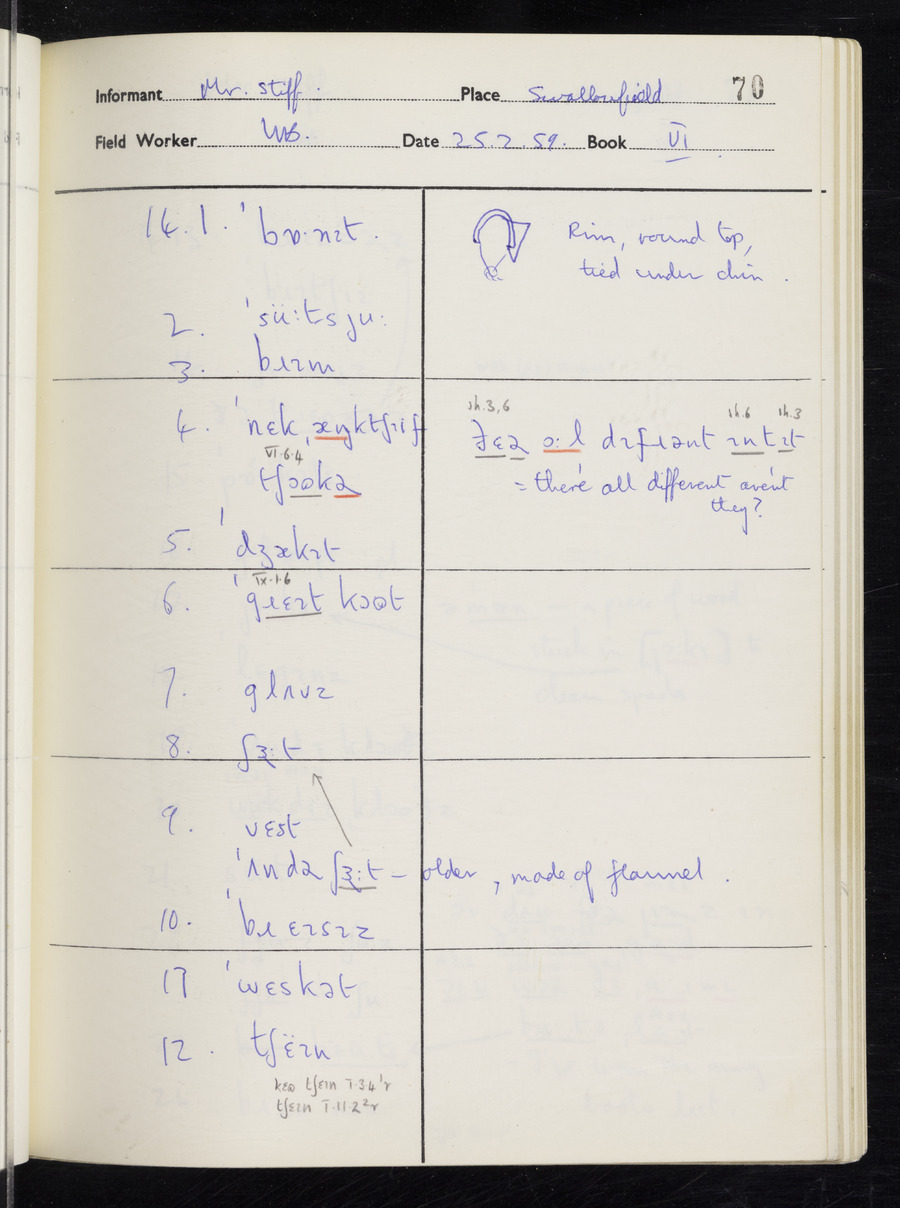 Informant Mr. Stiff. Place Swallowfield 70
Field Worker Date 25.2.59. Book VI
14. 1. ˈbɒ·nɪt. Rim, round top,
tied under chin.
2. ˈsüːtsjuː
3. bɪɪm
sh.3,6 sh.6 sh.3
4. ˈnɛk ˌæŋktʃɪif ðɛə ɔːl dɪfɹənt ɪntɪt
VI.6.4
tʃɔʊkə = there all different aren't
they?
5. ˈdʒækɪt
IX.1.6
6. ˈgɹɛɪt kɔʊt
7. glʌvz
8. ʃɜːt
9. vɛst
ˈʌndə ʃɜːt – older, made of flannel.
10. ˈbɹɛɪsɪz
11 ˈwɛskət
12. tʃɛ̈ɪn
tʃɛɪn I.3.4
tʃɛɪn I.11.2